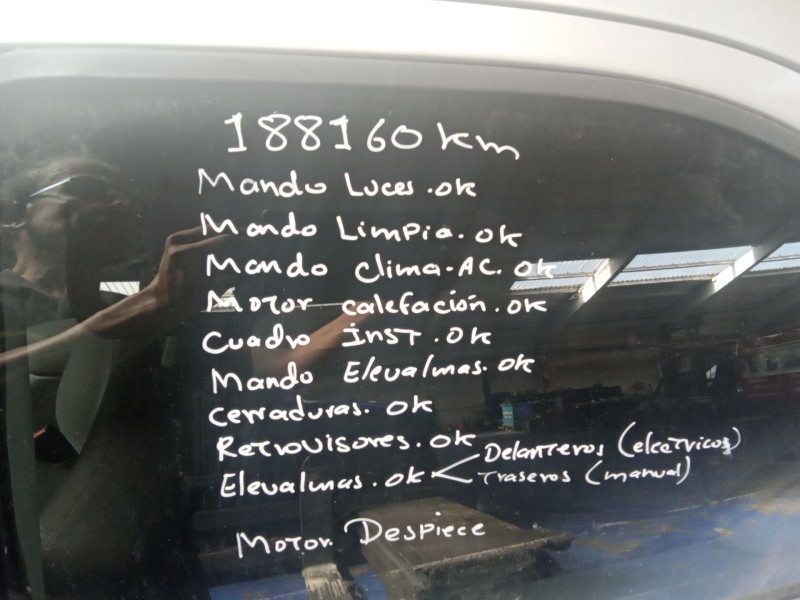 188160 km
Mando Luces.ok
Mando Limpia.ok
Mando clima-AC.ok
Motor calefación.ok
Cuadro inst.ok
Mando Elevalmas.ok
Cerraduras.ok
Retrovisores.ok
Elevalmas.ok < Delanteros (elcetricos)
Traseros (manual)
Motor Despiece